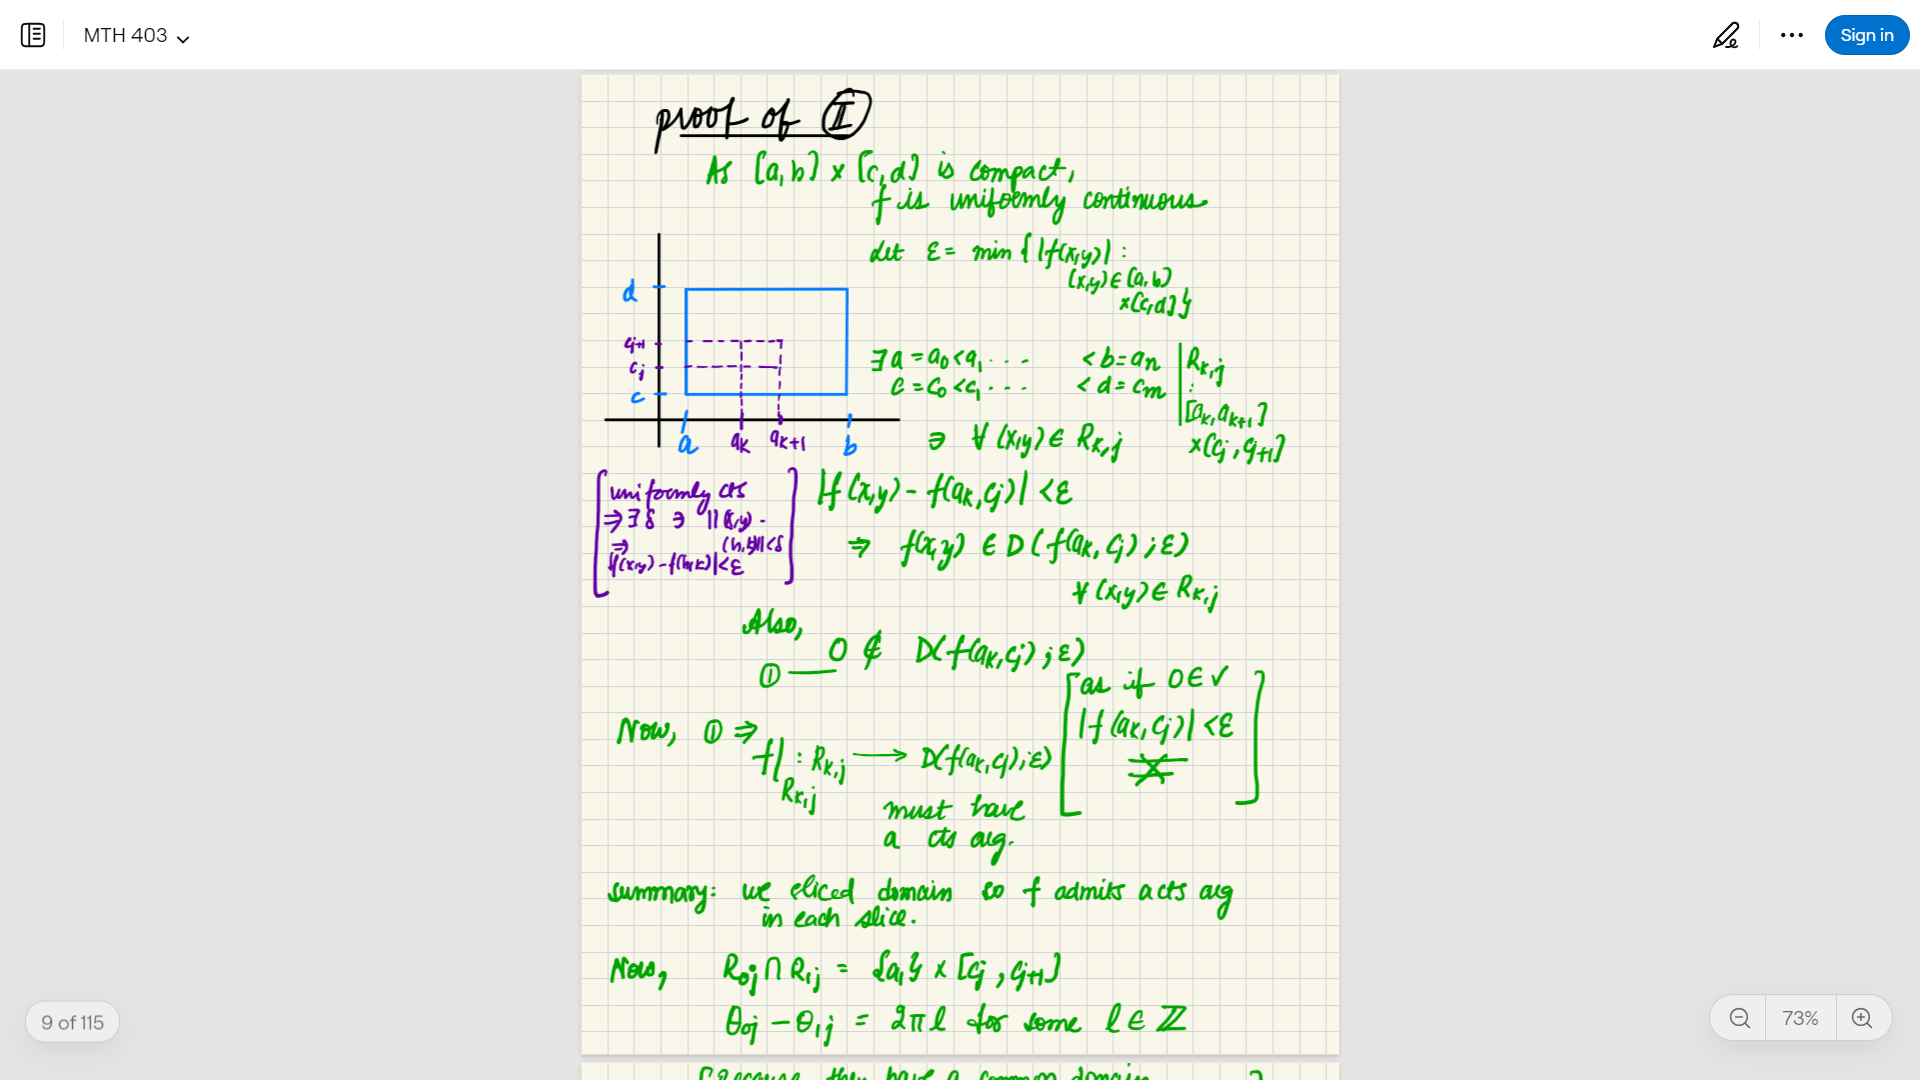 MTH 403
Sign in
proof of Ⅱ
As [a,b] × [c,d] is compact,
f is uniformly continuous
Let ε = min { |f(x,y)| :
(x,y) ∈ [a,b]
×[c,d] }
d
cj+1
cj
c
a
ak
ak+1
b
∃ a = a0 < a1 .... < b = an
c = c0 < c1 ... < d = cm
Rk,j
:
[ak, ak+1]
×[cj, cj+1]
∋ ∀ (x,y) ∈ Rk,j
|f(x,y) - f(ak,cj)| < ε
[uniformly cts
⇒ ∃ δ ∋ ||(x,y) -
(h,k)|| < δ
⇒
|f(x,y) - f(h,k)| < ε]
⇒ f(x,y) ∈ D(f(ak,cj);ε)
∀ (x,y) ∈ Rk,j
Also,
① — 0 ∉ D(f(ak,cj);ε)
[as if 0 ∈ ✓
|f(ak,cj)| < ε]
Now, ① ⇒
f|Rk,j : Rk,j → D(f(ak,cj);ε)
must have
a cts arg.
summary: we sliced domain so f admits a cts arg
in each slice.
Now, R0j ∩ R1j = {a1} × [cj, cj+1]
θ0j - θ1j = 2πl for some l ∈ ℤ
[because they have a common domain
9 of 115
73%